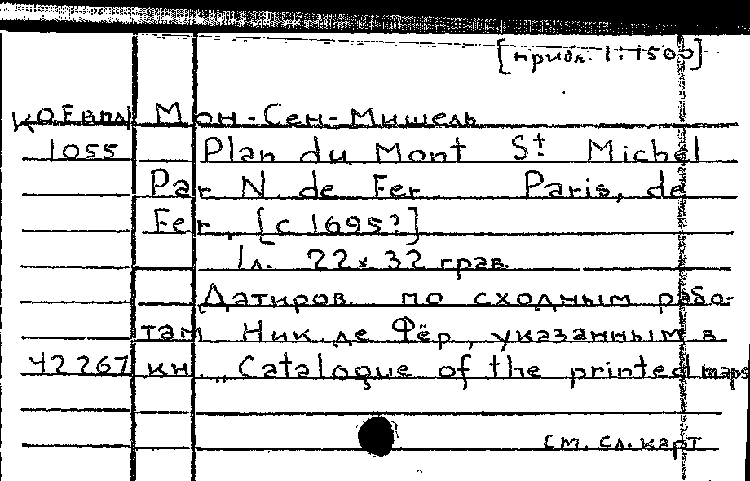 [прибл. 1:1500]
К0Евпл Мон-Сен-Мишель
1055 Plan du Mont St Michel
Par N. de Fer Paris, de
Fer, [c 1695?]
1л. 22x32 грав.
Датиров. по сходным рабо-
там Ник. де Фёр, указанным в
42267 кн. „Catalogue of the printed maps
см. сл. карт